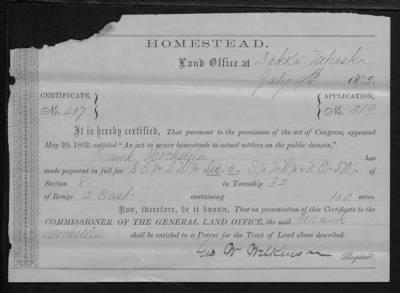 HOMESTEAD.
Land Office at Dakota, Nebraska
July 9th 1872.
CERTIFICATE, APPLICATION,
No. 207 No. 319
It is hereby certified, That pursuant to the provisions of the act of Congress, approved
May 20, 1862, entitled "An act to secure homesteads to actual settlers on the public domain,"
Frank Hochstein has
made payment in full for
Section 8, in Township 32
of Range 2 East containing 160 acres.
Now, therefore, be it known, That on presentation of this Certificate to the
COMMISSIONER OF THE GENERAL LAND OFFICE, the said Frank
Hochstein shall be entitled to a Patent for the Tract of Land above described.
Geo W Wilkinson Register.